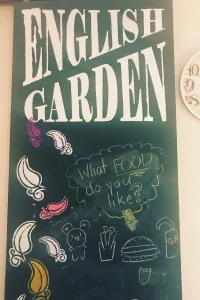 ENGLISH
GARDEN
What FOOD
do you
like?